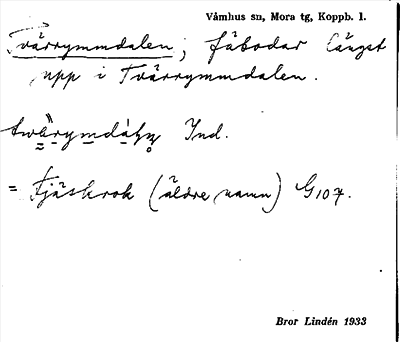 Våmhus sn, Mora tg, Koppb. l.
Tvärrymmdalen; fäbodar längst
upp i Tvärrymmdalen.
Ind.
= Fjäskrok (äldre namn) G107.
Bror Lindén 1933